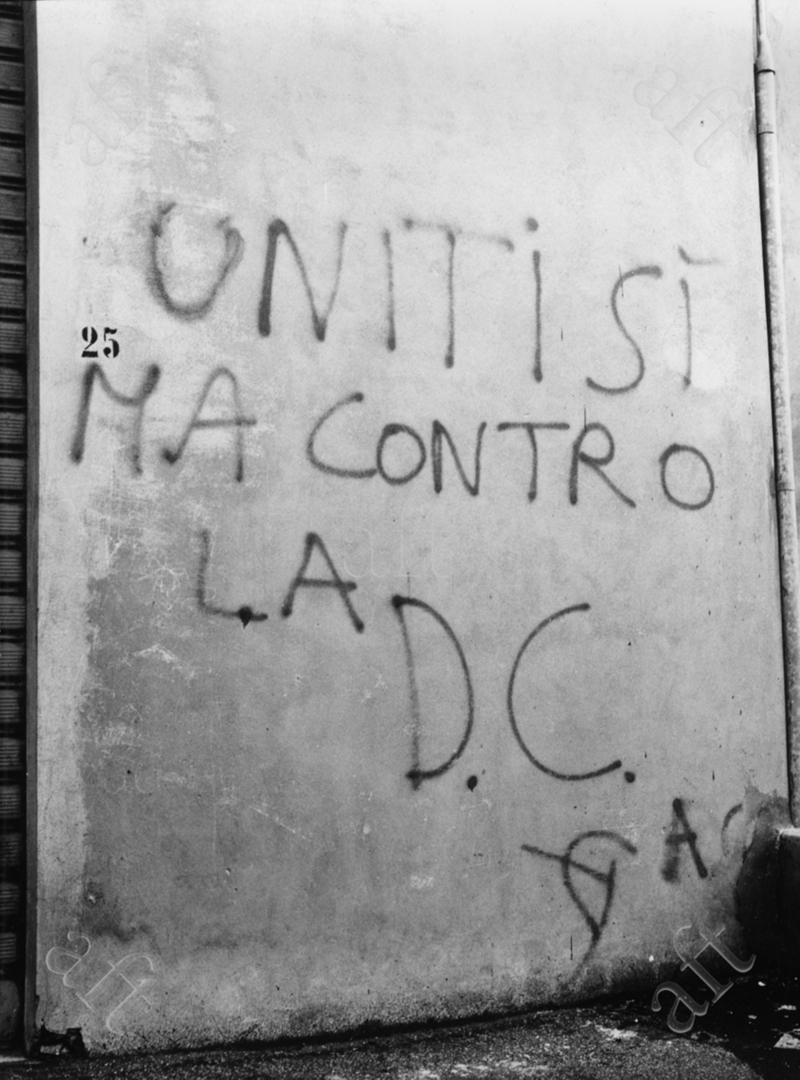 UNITI SÌ
25
MA CONTRO
LA
D.C.
aft
aft
aft
aft